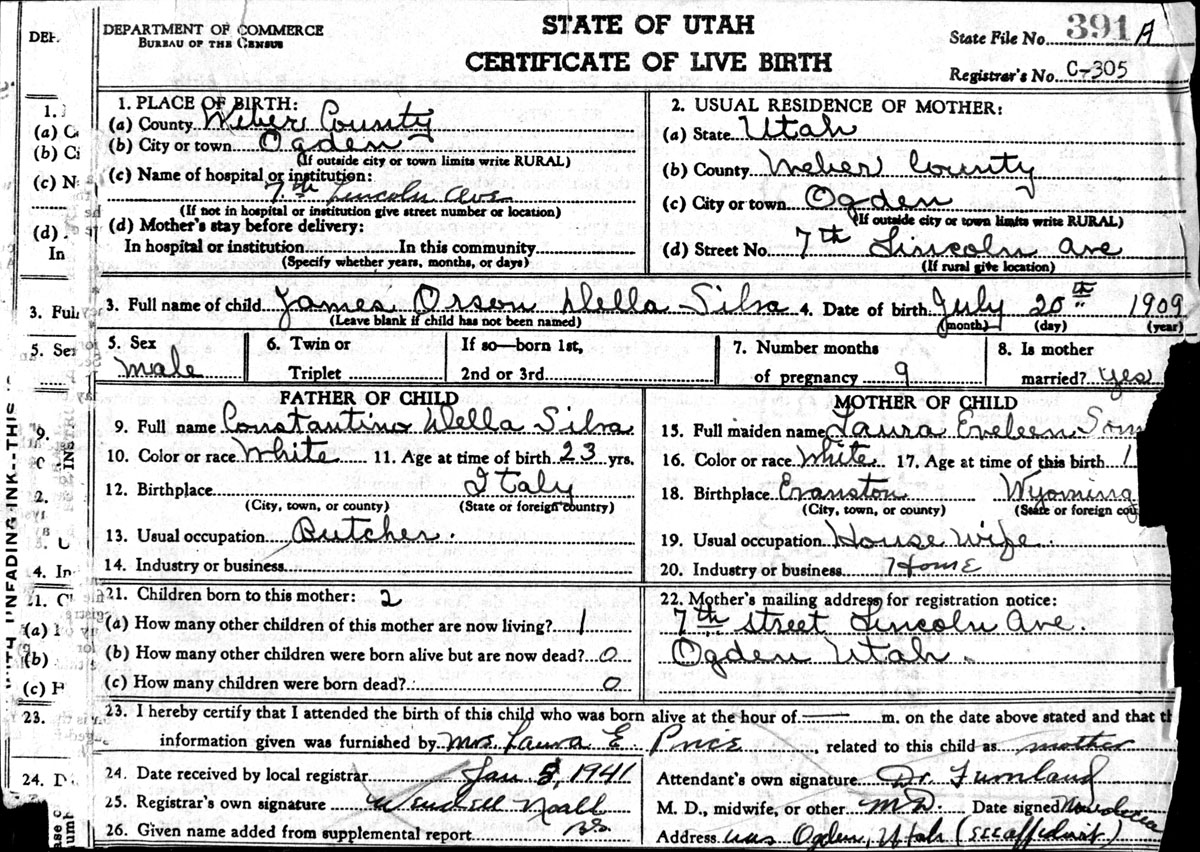 DEPARTMENT OF COMMERCE
BUREAU OF THE CENSUS
STATE OF UTAH
CERTIFICATE OF LIVE BIRTH
State File No. 391 A
Registrar's No. C-305
1. PLACE OF BIRTH:
(a) County Weber County
(b) City or town Ogden
(If outside city or town limits write RURAL)
(c) Name of hospital or institution:
7.th Lincoln Ave
(If not in hospital or institution give street number or location)
(d) Mother's stay before delivery:
In hospital or institution In this community
(Specify whether years, months, or days)
2. USUAL RESIDENCE OF MOTHER:
(a) State Utah
(b) County Weber County
(c) City or town Ogden
(If outside city or town limits write RURAL)
(d) Street No. 7th Lincoln Ave
(If rural give location)
3. Full name of child James Orson Della Silva 4. Date of birth July 20th 1909
(Leave blank if child has not been named) (month) (day) (year)
5. Sex Male
6. Twin or Triplet
If so—born 1st, 2nd or 3rd
7. Number months of pregnancy 9
8. Is mother married? Yes
FATHER OF CHILD
9. Full name Constantino Della Silva
10. Color or race White 11. Age at time of birth 23 yrs.
12. Birthplace Italy
(City, town, or county) (State or foreign country)
13. Usual occupation Butcher.
14. Industry or business
MOTHER OF CHILD
15. Full maiden name Laura Eveleen Som
16. Color or race White 17. Age at time of this birth 1
18. Birthplace Evanston Wyoming
(City, town, or county) (State or foreign cou
19. Usual occupation House Wife.
20. Industry or business Home
21. Children born to this mother: 2
(a) How many other children of this mother are now living? 1
(b) How many other children were born alive but are now dead? 0
(c) How many children were born dead? 0
22. Mother's mailing address for registration notice:
7th street Lincoln Ave.
Ogden Utah.
23. I hereby certify that I attended the birth of this child who was born alive at the hour of m. on the date above stated and that th
information given was furnished by Mrs Laura E Price, related to this child as mother
24. Date received by local registrar Jan 8, 1941
25. Registrar's own signature Wendell Noall
26. Given name added from supplemental report
Attendant's own signature Dr.
M. D., midwife, or other M.D. Date signed
Address was Ogden, Utah (See affidavit)